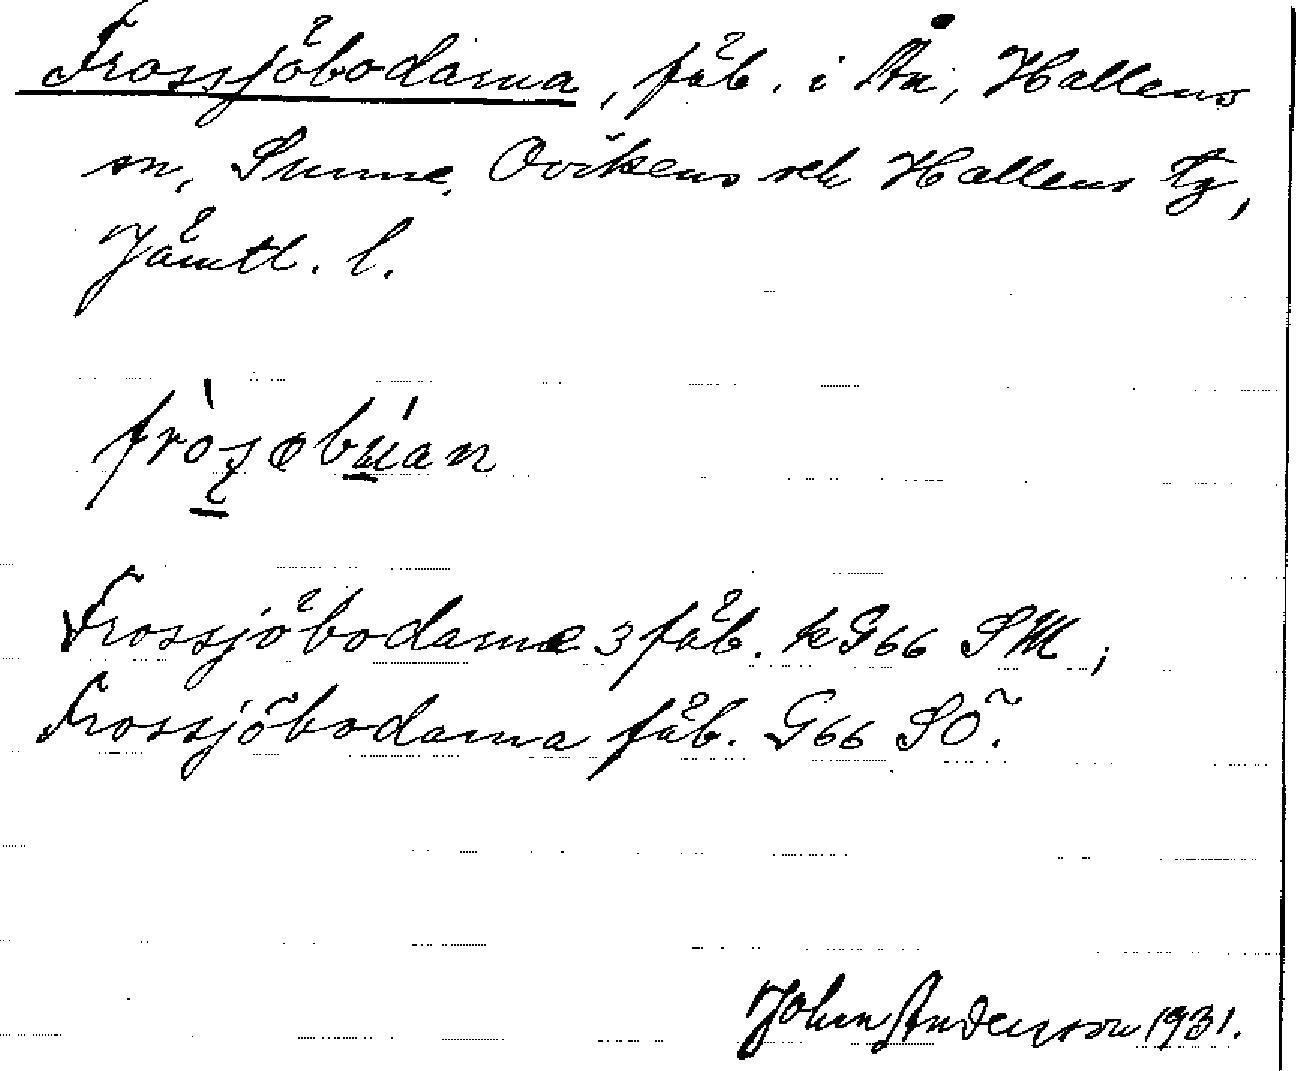 Frossjöbodarna, fäb. i Ån, Hallens
sn, Sunne, Ovikens och Hallens tg,
Jämtl. l.
fròsøbúan
Frossjöbodarne 3 fäb. kG66 SM,
Frossjöbodarna fäb. G66 SÖ.
John Anderson 1931.